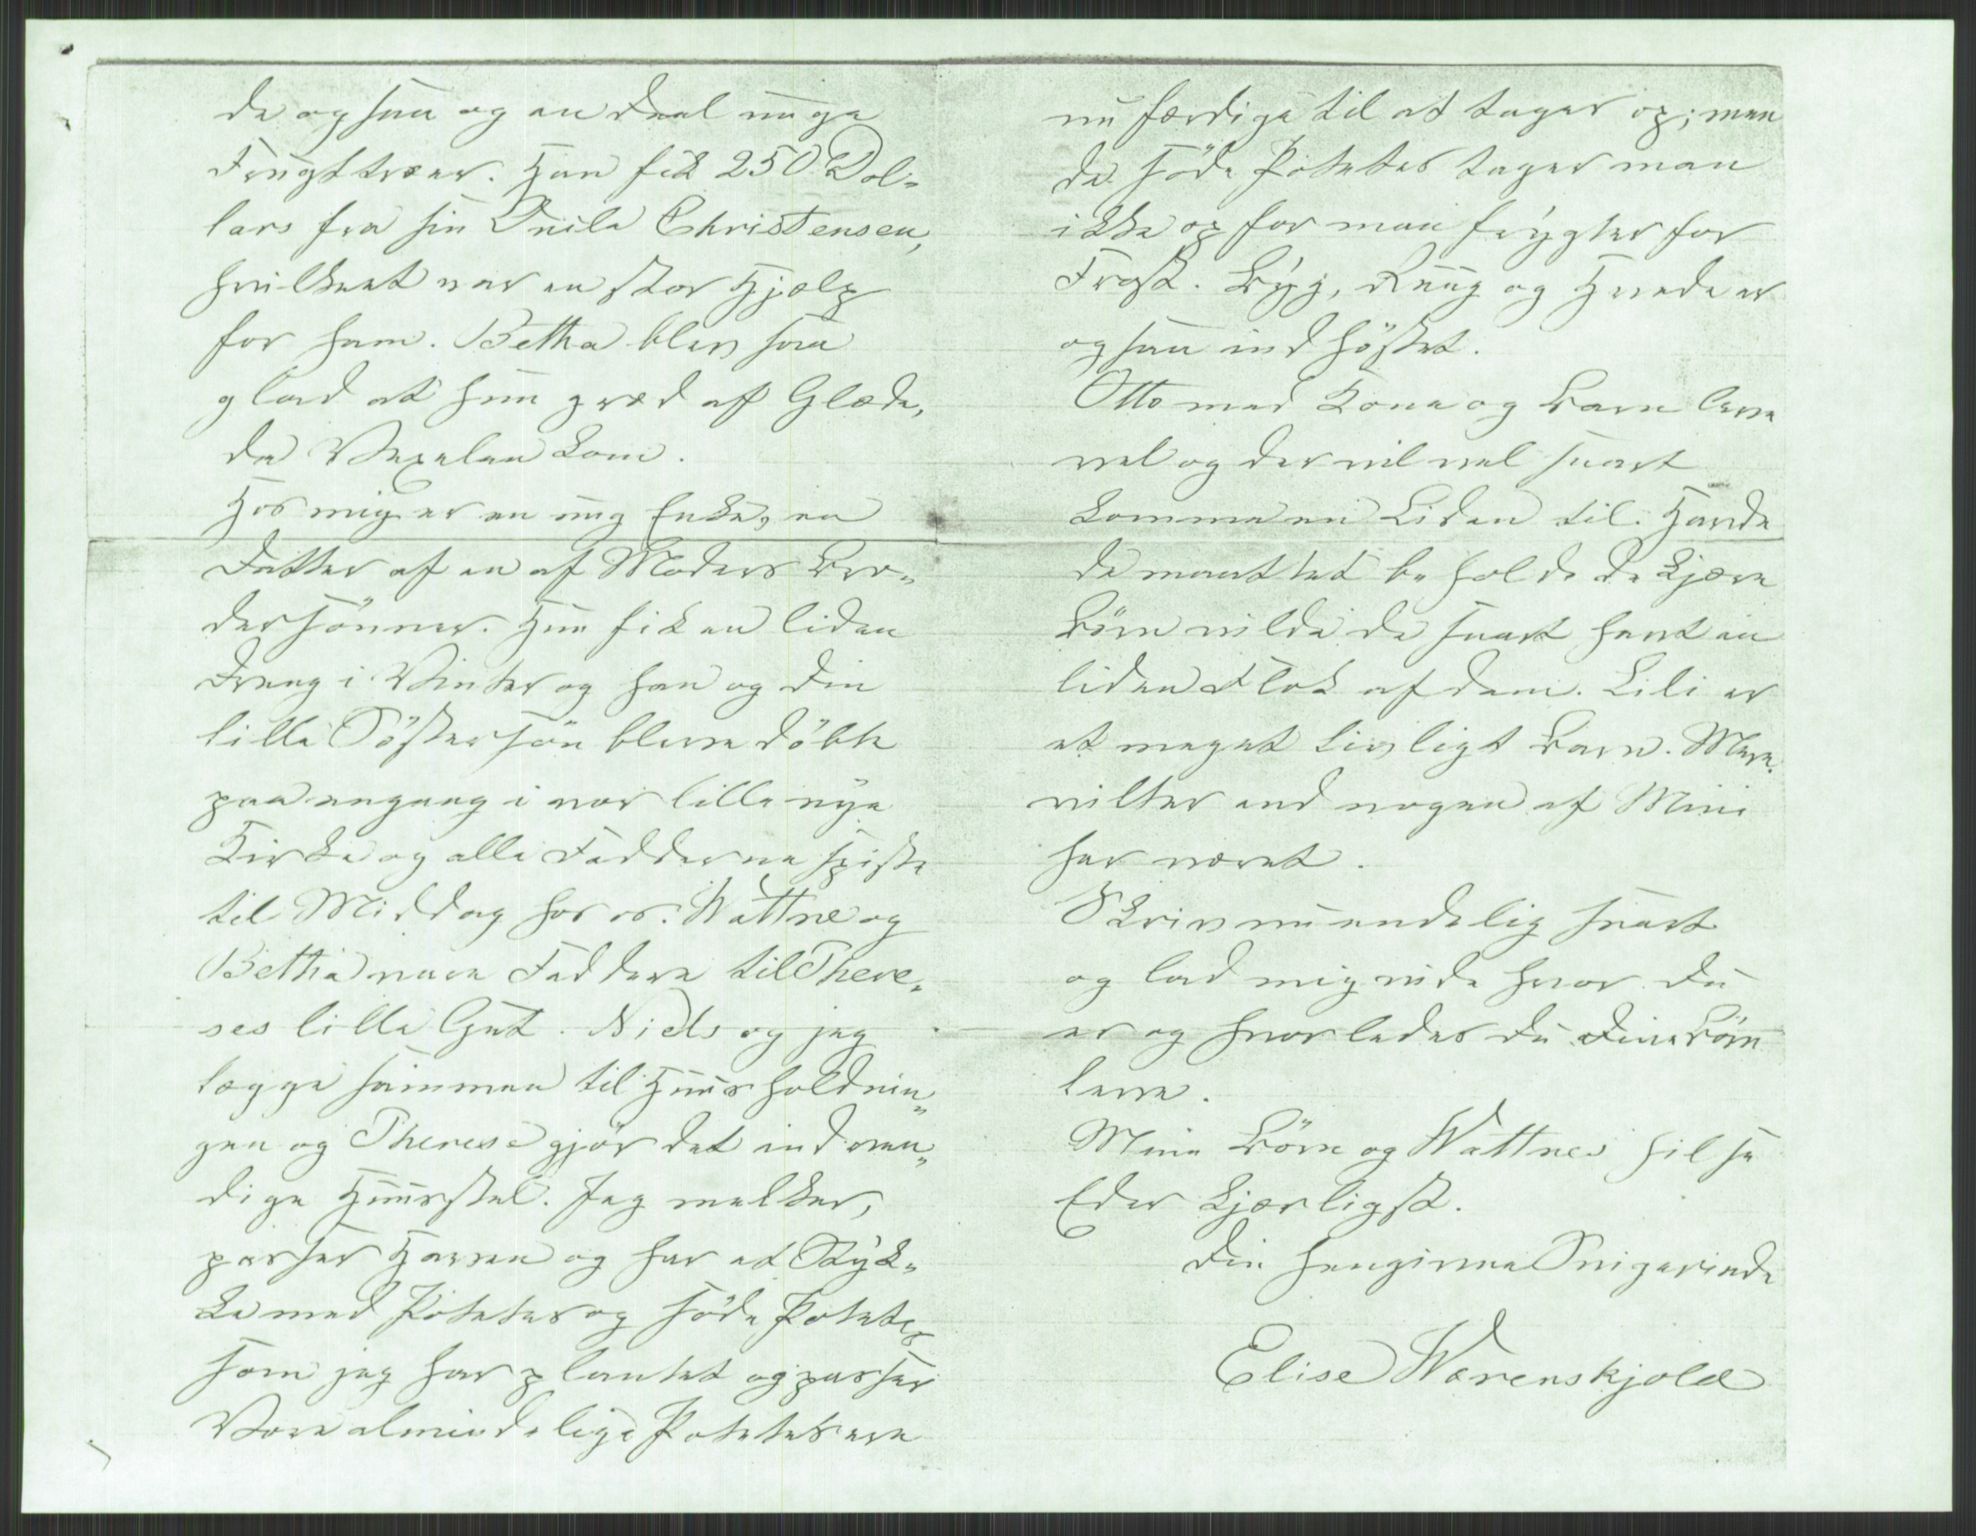 de ogsaa og en Deel unge
Frugttræer. Han fik 250 Dol-
lars fra sin Onkle Christensen,
hvilket var en stor Hjælp
for ham. Betha blev saa
glad at hun græd af Glæde,
da Vexelen kom.
Hos mig er en ung Enke, en
Datter af en af Moders Bro-
dersönner. Hun fik en liden
Dreng i Vinter og han og din
lille Söstersön bleve döbte
paa engang i vor lille nye
Kirke og alle Fadderne spiste
til Middag hos os. Wattne og
Betha vare Faddere til There-
ses lille Gut. Niels og jeg
lægge sammen til Huusholdnin-
gen og Therese gjör det indven-
dige Huusstel. Jeg melker,
passer Haven og har et Styk-
ke med Poteter og söde Poteter
som jeg har plantet og passer
Vore almindelige Poteter ere
nu færdige til at tages op; men
de söde Poteter tager man
ikke op för man frygter for
Frost. Byg, Rug og Hvede er
ogsaa indhöstet.
Otto med Kone og Barn leve
vel og der vil vel snart
komme en Liden til. Havde
de maattet beholde de kjære
Börn vilde de snart havt en
liden Flok af dem. Lili er
et meget livligt Barn. Mere
vilter end nogen af Mine
har været.
Skriv nu endelig snart
og lad mig vide hvor Du
er og hvorledes Du Dine Börn
leve.
Mine Börn og Wattnes hilse
Eder kjærligst.
Din hengivne Svigerinde
Elise Wærenskjold